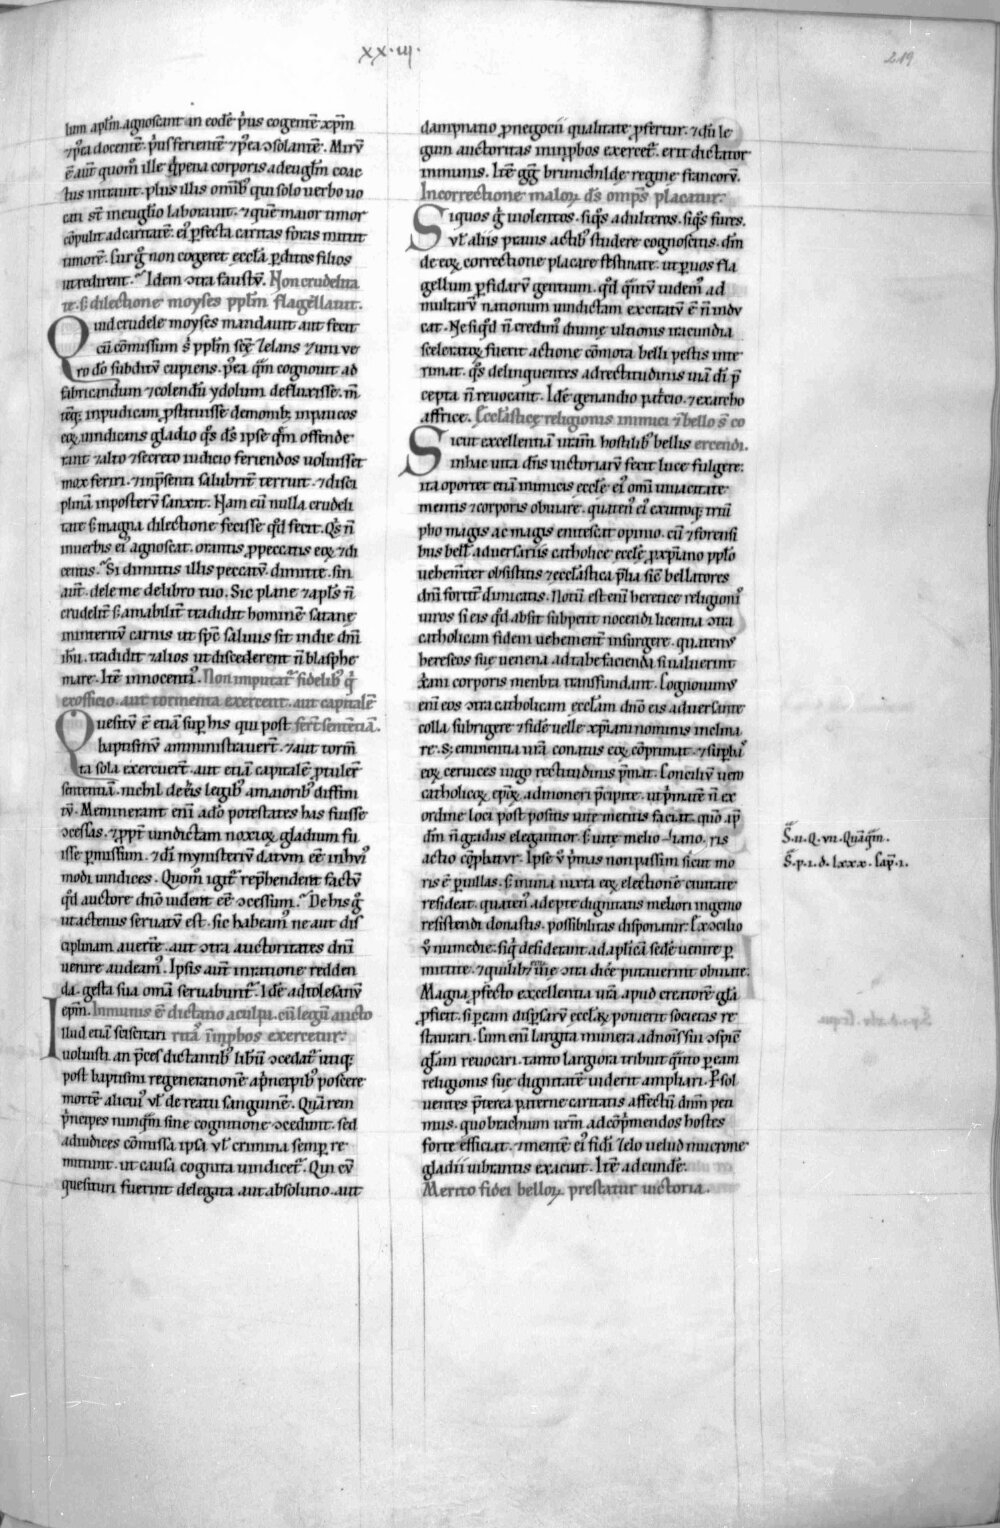 xx·iij·
219
lum aplm̄ agnoscant in eodē prius cogentē xpm̄
⁊ p'ea docentē. prius ferientē ⁊ p'ea ↄsolantē. Mirū
ē aut̄ quom̊ ille q̇ pena corporis ad euḡlm coac
tus intrauit. plus illis omīb; qui solo uerbo uo
cati st̄ in euḡlio laborauit. ⁊ quē maior timor
cōpulit ad caritatē. ei᷒ ꝑfecta caritas foras mittit
timorē. Cur g̊ non cogeret ecclā ꝑditos filios
ut redirent. Idem ↄtra faustū. Non crudelita
te. s; dilectione moyses pplm̄ flagellauit.
Quid crudele moyses mandauit aut fecit
cū cōmissum s' pplm̄ scē zelans ⁊ uni ue
ro do subditū cupiens. p'ea qm̄ cognouit ad
fabricandum ⁊ colendū ydolum defluxisse. m̄
teq; inpudicam ꝓstituisse demonib; in paucos
eoꝝ uindicans gladio q's ds̄ ipse q̄m offende
rant ⁊ alto ⁊ secreto iudicio feriendos uoluisset
mox feriri. ⁊ inp̄senti salubrit̄ terruit. ⁊ disci
plinā in posterū sanxit. Nam eū nulla crudeli
tate s; magna dilectione fecisse qd̄ fecit. Q's n̄
in uerbis ei᷒ agnoscat. orantis ꝓ peccatis eoꝝ ⁊ di
centis. Si dimittis illis peccatū dimitte. sin
aut̄. dele me de libro tuo. Sic plane ⁊ apls̄ n̄
crudelit̄ s; amabilit̄ tradidit hominē satane
in interitū carnis ut sp̄c saluus sit in die dn̄i
ihū. tradidit ⁊ alios ut discederent n̄ blasphe
mare. Itē innocenti᷒. Non imputat᷑ fidelib; q̇
ex officio. aut tormenta exercent. aut capitalē
Quesitū ē etiā sup his qui post ferūt sententiā.
baptismū amministrauert̄. ⁊ aut torm̄
ta sola exercuert̄. aut etiā capitalē ꝓtulert̄
sententiā. nichil de eis legib; a maiorib; diffini
tū. Meminerant enī a do potestates has fuisse
ↄcessas. ⁊ ꝓpt᷑ uindictam noxioꝝ gladium fu
isse ꝑmissum. ⁊ dī mynisteriū datum eē in hui᷒
modi uindices. Quom̊ igit᷑ rep̄hendent factū
qd̄ auctore dn̄o uident eē ↄcessum. De his g̊
ut actenus seruatū est. sic habeam᷒ ne aut dis
ciplinam auertē. aut ↄtra auctoritates dn̄i
uenire audeam᷒. Ipsis aut̄ in ratione redden
da. gesta sua omīa seruabunt᷑. Idē ad tolesanū
epm̄. Inmunis ē dictatio a culpa. cū legū aucto
Illud etiā sciscitari ritas in īꝓbos exercetur.
uoluisti. an p̄ces dictantib; libeū ↄcedat᷑ utiq;
post baptismi regenerationē a p̄ncipib; poscere
mortē alicui᷒ ul̄ de reatu sanguinē. Quā rem
p̄ncipes nunq̄m sine cognitione ↄcedunt. sed
ad iudices cōmissa ipsa ul̄ crimina semꝑ re
mittunt. ut causa cognita uindicet᷑. Qui cū
quesituri fuerint delegata aut absolutio. aut
dampnatio ꝓ negocii qualitate ꝓfertur. ⁊ dū le
gum auctoritas in inꝓbos exercet᷑. erit dictator
inmunis. Itē gg̊ brunichilde regine francorū.
In correctione maloꝝ ds̄ omps̄ placatur.
Siquos g̊ uiolentos. siq's adulteros. siq's fures.
ul̄ aliis prauis actib; studere cognoscitis. dm̄
de eoꝝ correctione placare festinate. ut p uos fla
gellum ꝑfidarū gentium. qd̄ q̄ntū uidem᷒ ad
multarū nationum uindictam excitatū ē n̄ indu
cat. Ne siqd̄ n̄ credim᷒ diuine ultionis iracundia
sceleratoꝝ fuerit actione cōmota belli pestis inte
rimat. q's delinquentes ad rectitudinis uiā dī p̄
cepta n̄ reuocant. Idē genandio patricio. ⁊ exarcho
affrice. Ecclastice religionis inimici ⁊ bello s̄ co
Sicut excellentiā urām hostilib; bellis ercendi.
in hac uita dn̄s uictoriarū fecit luce fulgere.
ita oportet etiā inimicis eccle ei᷒ omī uiuacitate
mentis ⁊ corporis obuiare. quaten᷒ ei᷒ ex utroq; triū
pho magis ac magis enitescat opinio. cū ⁊ forensi
bus bell' aduersariis catholice eccle ꝓ xpiano pplo
uehemēter obsistitis ⁊ ecclastica p̄lia sic bellatores
dn̄i fortit̄ dimicatis. Notū est enī heretice religioni᷒
uiros si eis qd̄ absit subpetit nocendi licentia ↄtra
catholicam fidem uehement̄ insurgere. quatenus
hereseos sue uenena ad tabefacienda si ualuerint
xp̄iani corporis menbra transfundant. Cognouim᷒
enī eos ↄtra catholicam ecclam dn̄o eis aduersante
colla subrigere ⁊ fidē uelle xp̄iani nominis inclina
re. s; eminentia urā conatus eoꝝ cōprimat. ⁊ sup̄bas
eoꝝ ceruices iugo rectitudinis p̄mat. Conciliū uero
catholicoꝝ ep̄oꝝ admoneri p̄cipite. ut p̄matē n̄ ex
ordine loci post positis uite meritis faciat. quō apd̄
dm̄ n̄ gradus elegantior. s; uite melioris
actio cōprobatur. Ipse ū p̄mas non passim sicut mo
ris ē ꝑ uillas. s; in una iuxta eoꝝ electionē ciuitate
resideat. quaten᷒ adepte dignitatis meliori ingenio
resistendi donatistis. possibilitas disponatur. Ex ↄcilio
ū numidie. siq' desiderant ad aplicā sedē uenire ꝑ
mittite. ⁊ quilib; uie ↄtra dic'e putauerint obuiate.
Magna ꝓfecto excellentia urā apud creatorē glā
ꝓficit. si p eam dispersarū ecclaꝝ poterit societas re
staurari. Cum enī largita munera ad nois̄ sui ↄspic̄
glam reuocari. tanto largiora tribuit q̄nto p eam
religionis sue dignitatē uiderit ampliari. Psol
uentes p̄terea paterne caritatis affectū dn̄m peti
mus. quo brachium urm̄ ad cōp̄mendos hostes
forte efficiat. ⁊ mentē ei᷒ fidi zelo uelud mucrone
gladii uibrantis exacuat. Itē ad eundē.
Merito fidei belloꝝ prestatur uictoria.
S. ii. Q. vii. Quāq̄m.
S. p. i. d. lxxx. Cap. i.